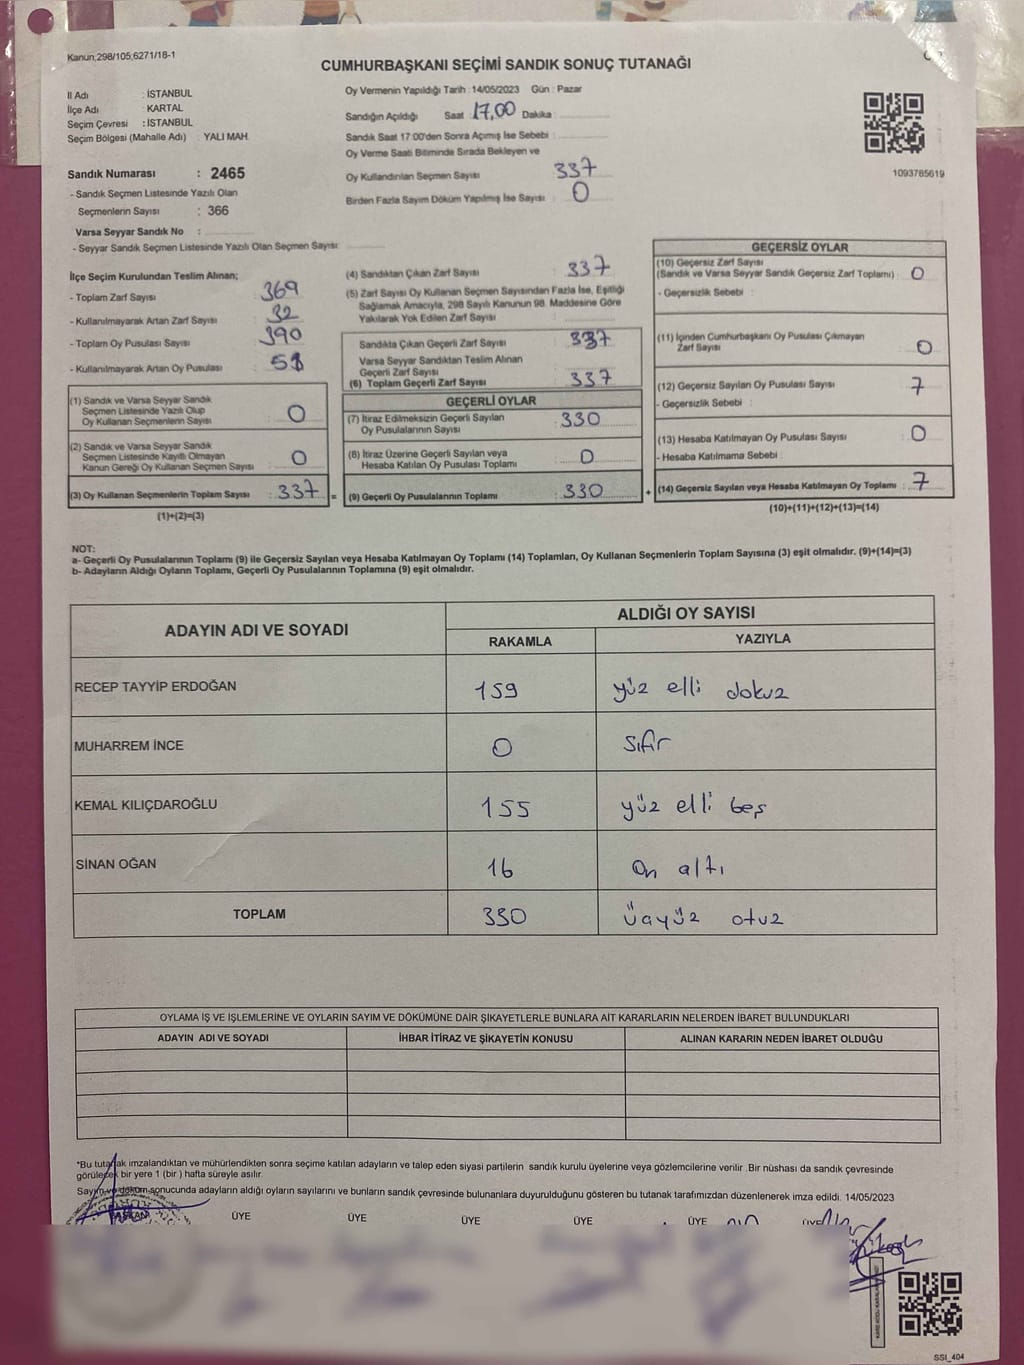 Kanun;298/105;6271/18-1
CUMHURBAŞKANI SEÇİMİ SANDIK SONUÇ TUTANAĞI
İl Adı : İSTANBUL
İlçe Adı : KARTAL
Seçim Çevresi : İSTANBUL
Seçim Bölgesi (Mahalle Adı) : YALI MAH.
Oy Vermenin Yapıldığı Tarih : 14/05/2023 Gün : Pazar
Sandığın Açıldığı Saat 17,00 Dakika :
Sandık Saat 17:00'den Sonra Açımış İse Sebebi :
Oy Verme Saati Bitiminde Sırada Bekleyen ve
Oy Kullandırılan Seçmen Sayısı 337
Birden Fazla Sayım Döküm Yapılmış İse Sayısı : 0
1093785619
Sandık Numarası : 2465
- Sandık Seçmen Listesinde Yazılı Olan
Seçmenlerin Sayısı : 366
Varsa Seyyar Sandık No :
- Seyyar Sandık Seçmen Listesinde Yazılı Olan Seçmen Sayısı:
İlçe Seçim Kurulundan Teslim Alınan;
- Toplam Zarf Sayısı 369
- Kullanılmayarak Artan Zarf Sayısı 32
- Toplam Oy Pusulası Sayısı 390
- Kullanılmayarak Artan Oy Pusulası
(1) Sandık ve Varsa Seyyar Sandık
Seçmen Listesinde Yazılı Olup
Oy Kullanan Seçmenlerin Sayısı 0
(2) Sandık ve Varsa Seyyar Sandık
Seçmen Listesinde Kayıtlı Olmayan
Kanun Gereği Oy Kullanan Seçmen Sayısı 0
(3) Oy Kullanan Seçmenlerin Toplam Sayısı : 337 =
(1)+(2)=(3)
(4) Sandıktan Çıkan Zarf Sayısı 337
(5) Zarf Sayısı Oy Kullanan Seçmen Sayısından Fazla İse, Eşitliği
Sağlamak Amacıyla, 298 Sayılı Kanunun 98. Maddesine Göre
Yakılarak Yok Edilen Zarf Sayısı :
Sandıkta Çıkan Geçerli Zarf Sayısı : 337
Varsa Seyyar Sandıktan Teslim Alınan
Geçerli Zarf Sayısı :
(6) Toplam Geçerli Zarf Sayısı : 337
GEÇERLİ OYLAR
(7) İtiraz Edilmeksizin Geçerli Sayılan
Oy Pusulalarının Sayısı : 330
(8) İtiraz Üzerine Geçerli Sayılan veya
Hesaba Katılan Oy Pusulası Toplamı : 0
(9) Geçerli Oy Pusulalarının Toplamı : 330 +
GEÇERSİZ OYLAR
(10) Geçersiz Zarf Sayısı
(Sandık ve Varsa Seyyar Sandık Geçersiz Zarf Toplamı) : 0
- Geçersizlik Sebebi :
(11) İçinden Cumhurbaşkanı Oy Pusulası Çıkmayan
Zarf Sayısı : 0
(12) Geçersiz Sayılan Oy Pusulası Sayısı : 7
- Geçersizlik Sebebi :
(13) Hesaba Katılmayan Oy Pusulası Sayısı : 0
- Hesaba Katılmama Sebebi :
(14) Geçersiz Sayılan veya Hesaba Katılmayan Oy Toplamı : 7
(10)+(11)+(12)+(13)=(14)
NOT:
a- Geçerli Oy Pusulalarının Toplamı (9) ile Geçersiz Sayılan veya Hesaba Katılmayan Oy Toplamı (14) Toplamları, Oy Kullanan Seçmenlerin Toplam Sayısına (3) eşit olmalıdır. (9)+(14)=(3)
b- Adayların Aldığı Oyların Toplamı, Geçerli Oy Pusulalarının Toplamına (9) eşit olmalıdır.
ADAYIN ADI VE SOYADI ALDIĞI OY SAYISI
RAKAMLA YAZIYLA
RECEP TAYYİP ERDOĞAN 159 yüz elli dokuz
MUHARREM İNCE 0 sıfır
KEMAL KILIÇDAROĞLU 155 yüz elli beş
SİNAN OĞAN 16 on altı
TOPLAM 330 üçyüz otuz
OYLAMA İŞ VE İŞLEMLERİNE VE OYLARIN SAYIM VE DÖKÜMÜNE DAİR ŞİKAYETLERLE BUNLARA AİT KARARLARIN NELERDEN İBARET BULUNDUKLARI
ADAYIN ADI VE SOYADI İHBAR İTİRAZ VE ŞİKAYETİN KONUSU ALINAN KARARIN NEDEN İBARET OLDUĞU
*Bu tutanak imzalandıktan ve mühürlendikten sonra seçime katılan adayların ve talep eden siyasi partilerin sandık kurulu üyelerine veya gözlemcilerine verilir .Bir nüshası da sandık çevresinde
görülecek bir yere 1 (bir ) hafta süreyle asılır.
Sayım ve döküm sonucunda adayların aldığı oyların sayılarını ve bunların sandık çevresinde bulunanlara duyurulduğunu gösteren bu tutanak tarafımızdan düzenlenerek imza edildi. 14/05/2023
BAŞKAN ÜYE ÜYE ÜYE ÜYE ÜYE ÜYE
SSI_404